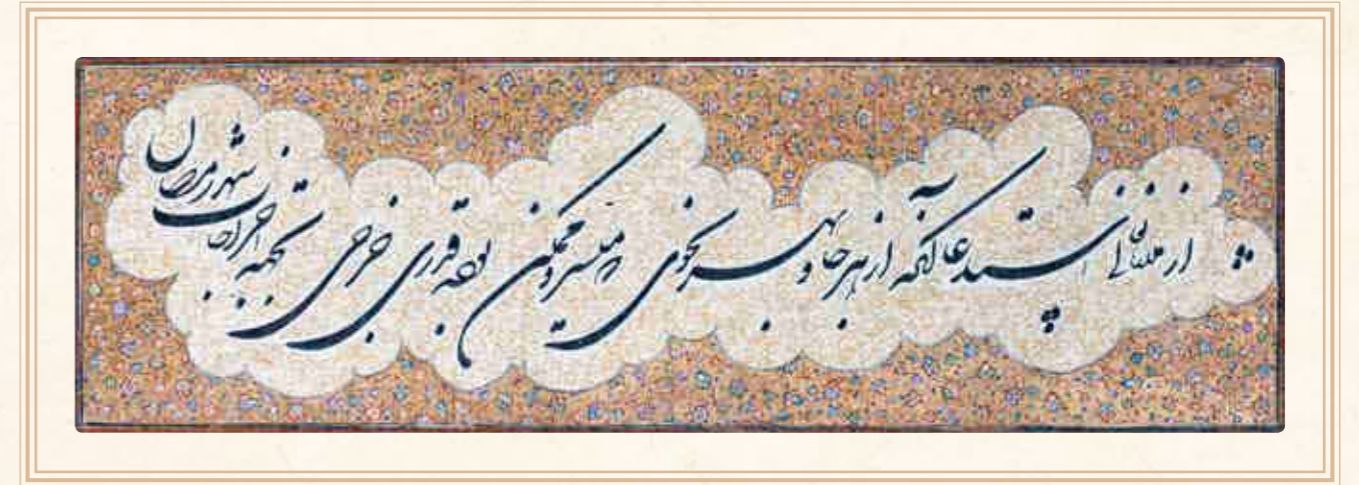 از ملازمان استدعا آنکه از هر جا و بهر نحوی که میسر و ممکن بوده قدری خرجی بجهه اخراجات شهر رمضان